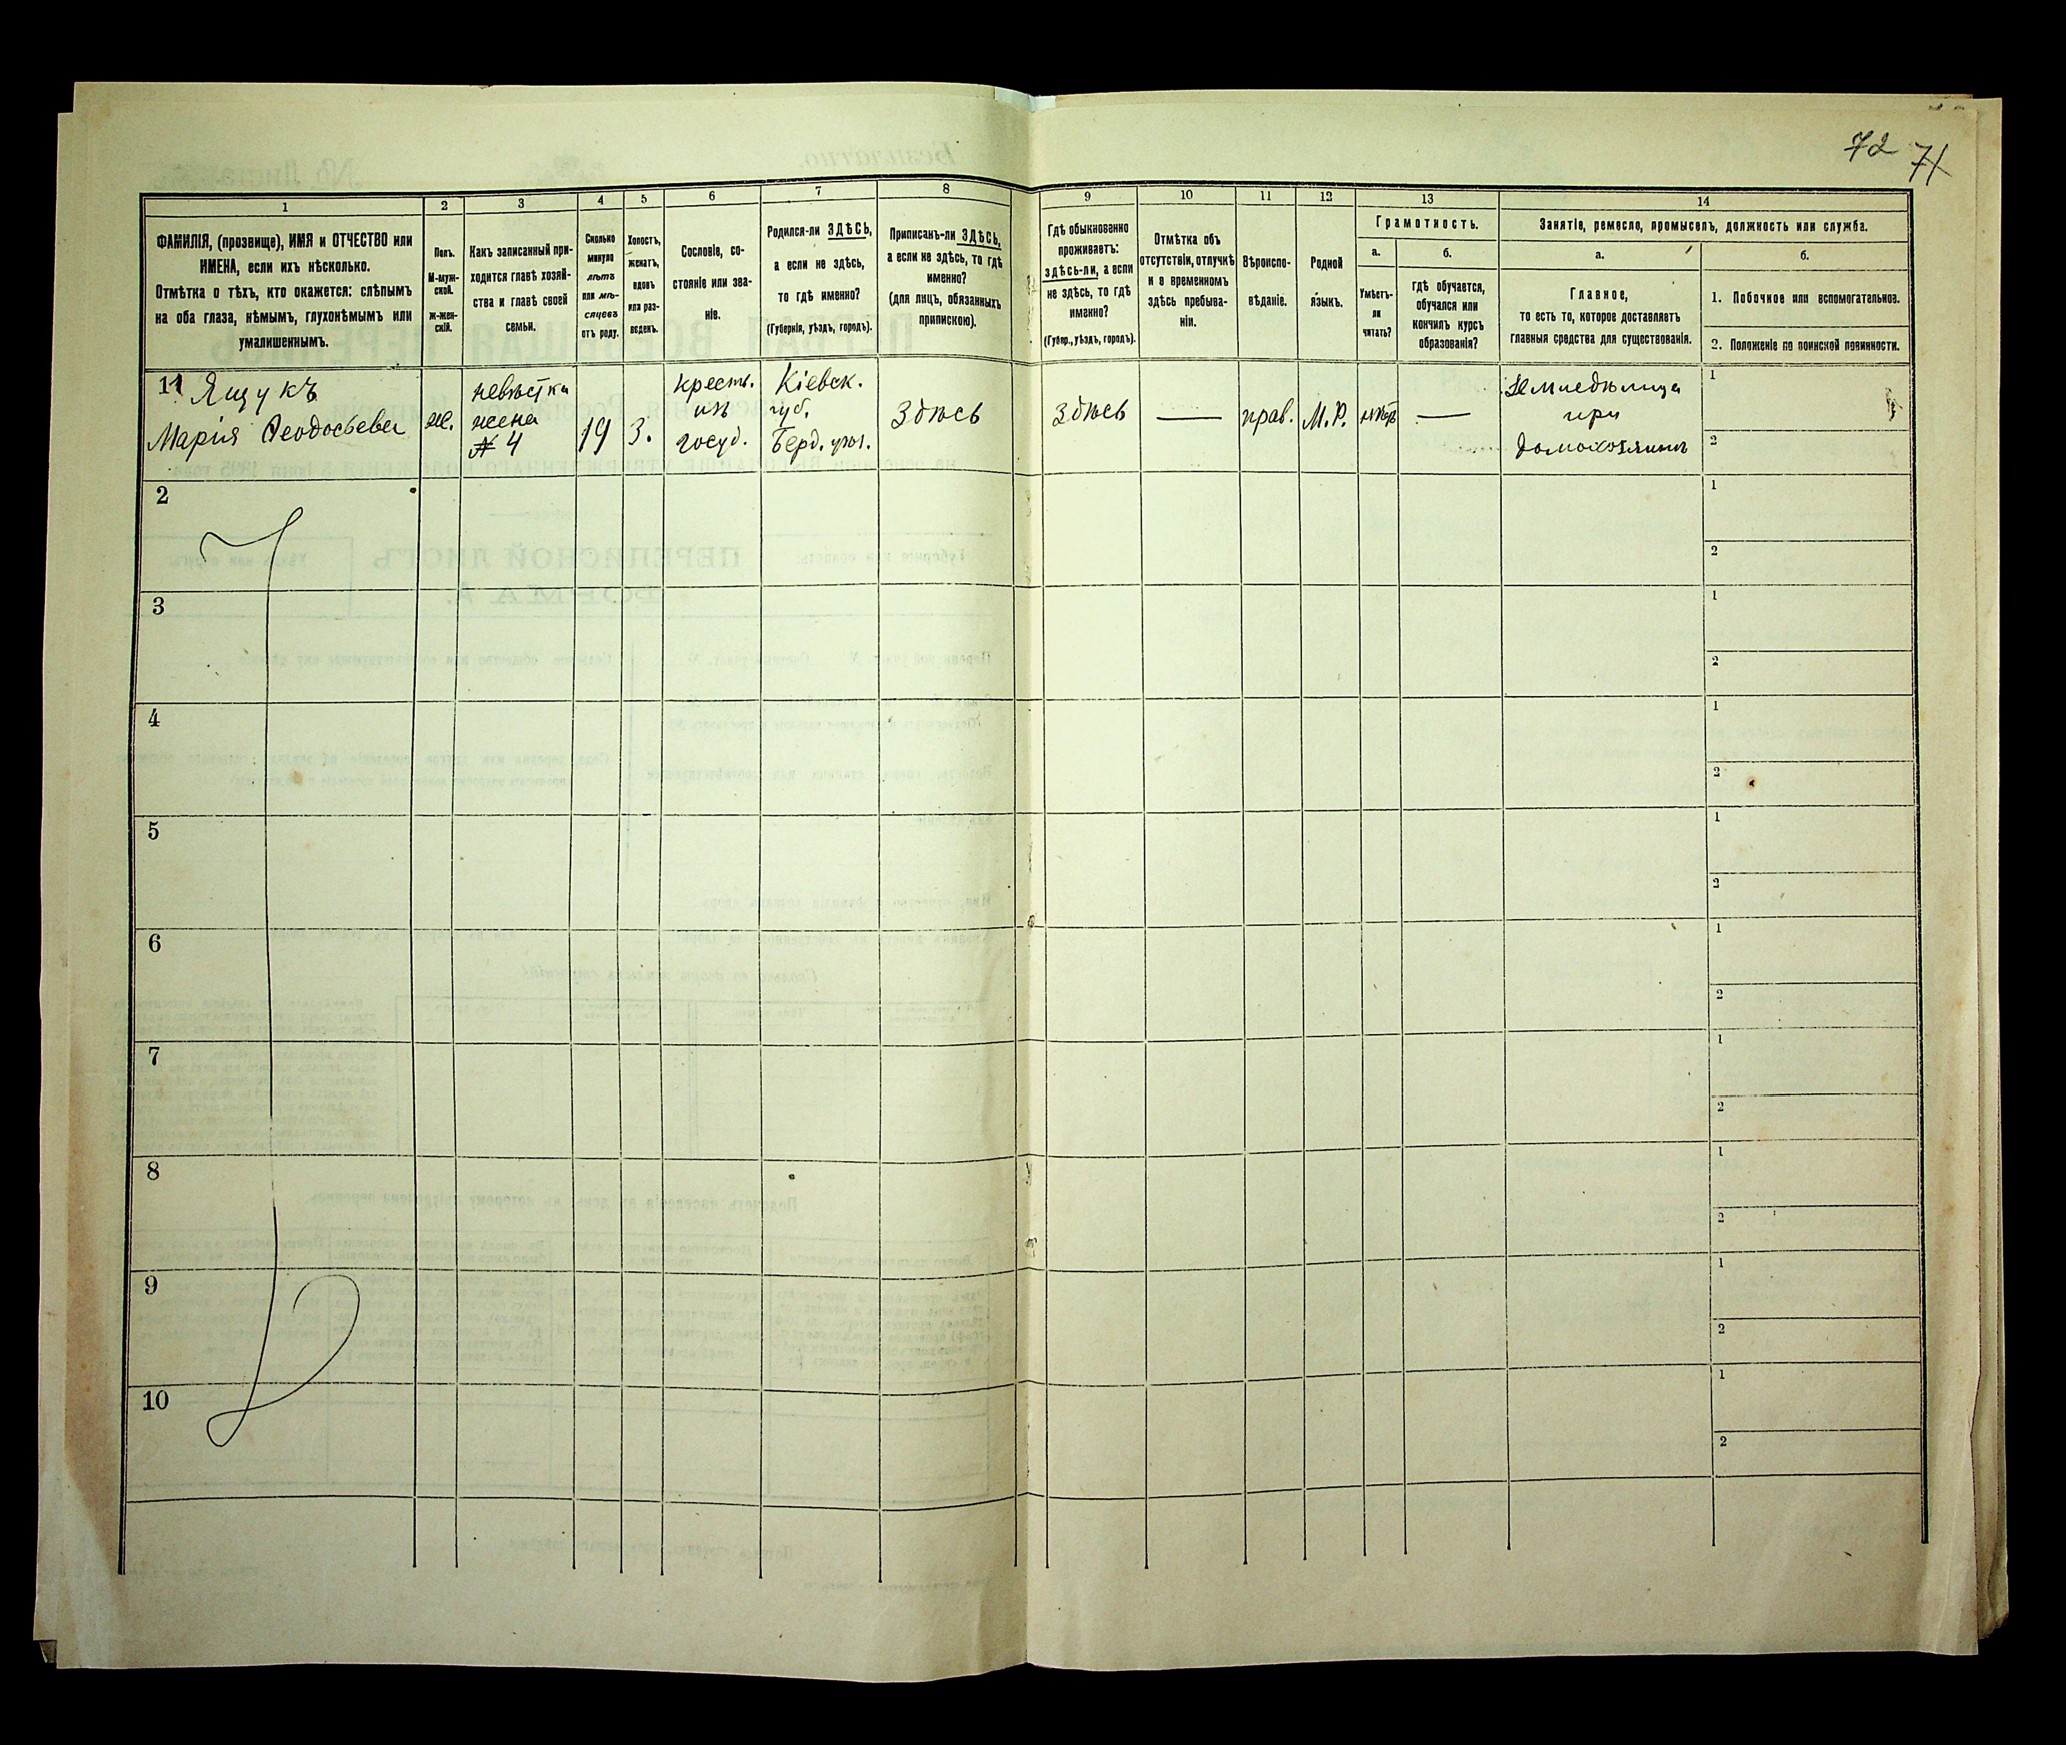 72 71
1
ФАМИЛІЯ, (прозвище), ИМЯ и ОТЧЕСТВО или
ИМЕНА, если ихъ нѣсколько.
Отмѣтка о тѣхъ, кто окажется: слѣпымъ
на оба глаза, нѣмымъ, глухонѣмымъ или
умалишеннымъ.
2
Полъ.
М-муж-
ской.
ж-жен-
скій.
3
Какъ записанный при-
ходится главѣ хозяй-
ства и главѣ своей
семьи.
4
Сколько
минуло
лѣтъ
или мѣ-
сяцевъ
отъ роду.
5
Холостъ,
женатъ,
вдовъ
или раз-
веденъ.
6
Сословіе, со-
стояніе или зва-
ніе.
7
Родился-ли ЗДѢСЬ,
а если не здѣсь,
то гдѣ именно?
(Губернія, уѣздъ, городъ).
8
Приписанъ-ли ЗДѢСЬ,
а если не здѣсь, то гдѣ
именно?
(для лицъ, обязанныхъ
припискою).
9
Гдѣ обыкновенно
проживаетъ:
здѣсь-ли, а если
не здѣсь, то гдѣ
именно?
(Губер., уѣздъ, городъ).
10
Отмѣтка объ
отсутствіи, отлучкѣ
и о временномъ
здѣсь пребыва-
ніи.
11
Вѣроиспо-
вѣданіе.
12
Родной
языкъ.
13
Грамотность.
а.
Умѣетъ-
ли
читать?
б.
гдѣ обучается,
обучался или
кончилъ курсъ
образованія?
14
Занятіе, ремесло, промыселъ, должность или служба.
а.
Главное,
то есть то, которое доставляетъ
главныя средства для существованія.
б.
1. Побочное или вспомогательное.
2. Положеніе по воинской повинности.
11 Ящукъ
Марія Ѳеодосьева
ж.
невѣстка
жена
№ 4
19
З.
крест.
изъ
госуд.
Кіевск.
губ.
Берд. уѣз.
Здѣсь
Здѣсь
—
прав.
М.Р.
нѣтъ
—
Земледѣлица
при
домохозяинѣ
1
2
2
1
2
3
1
2
4
1
2
5
1
2
6
1
2
7
1
2
8
1
2
9
1
2
10
1
2